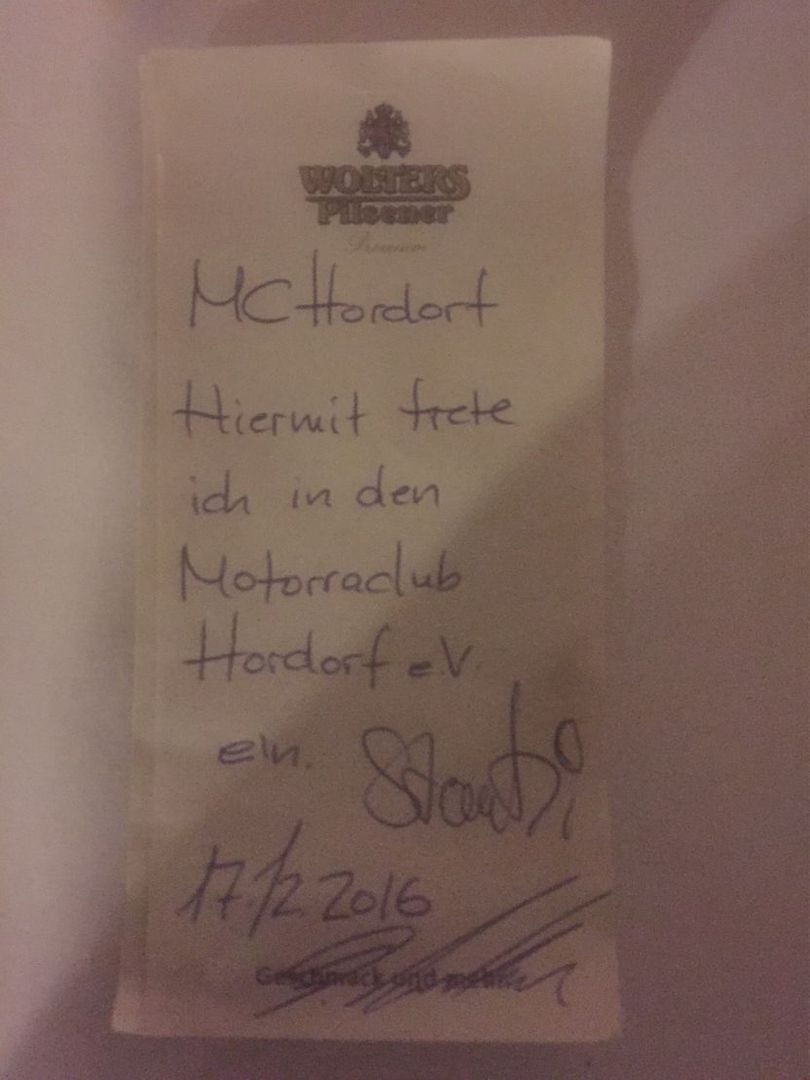 WOLTERS
Pilsener
Premium
MC Hordorf
Hiermit trete
ich in den
Motorraclub
Hordorf e.V.
ein.
17.12.2016
Geschmack und mehr